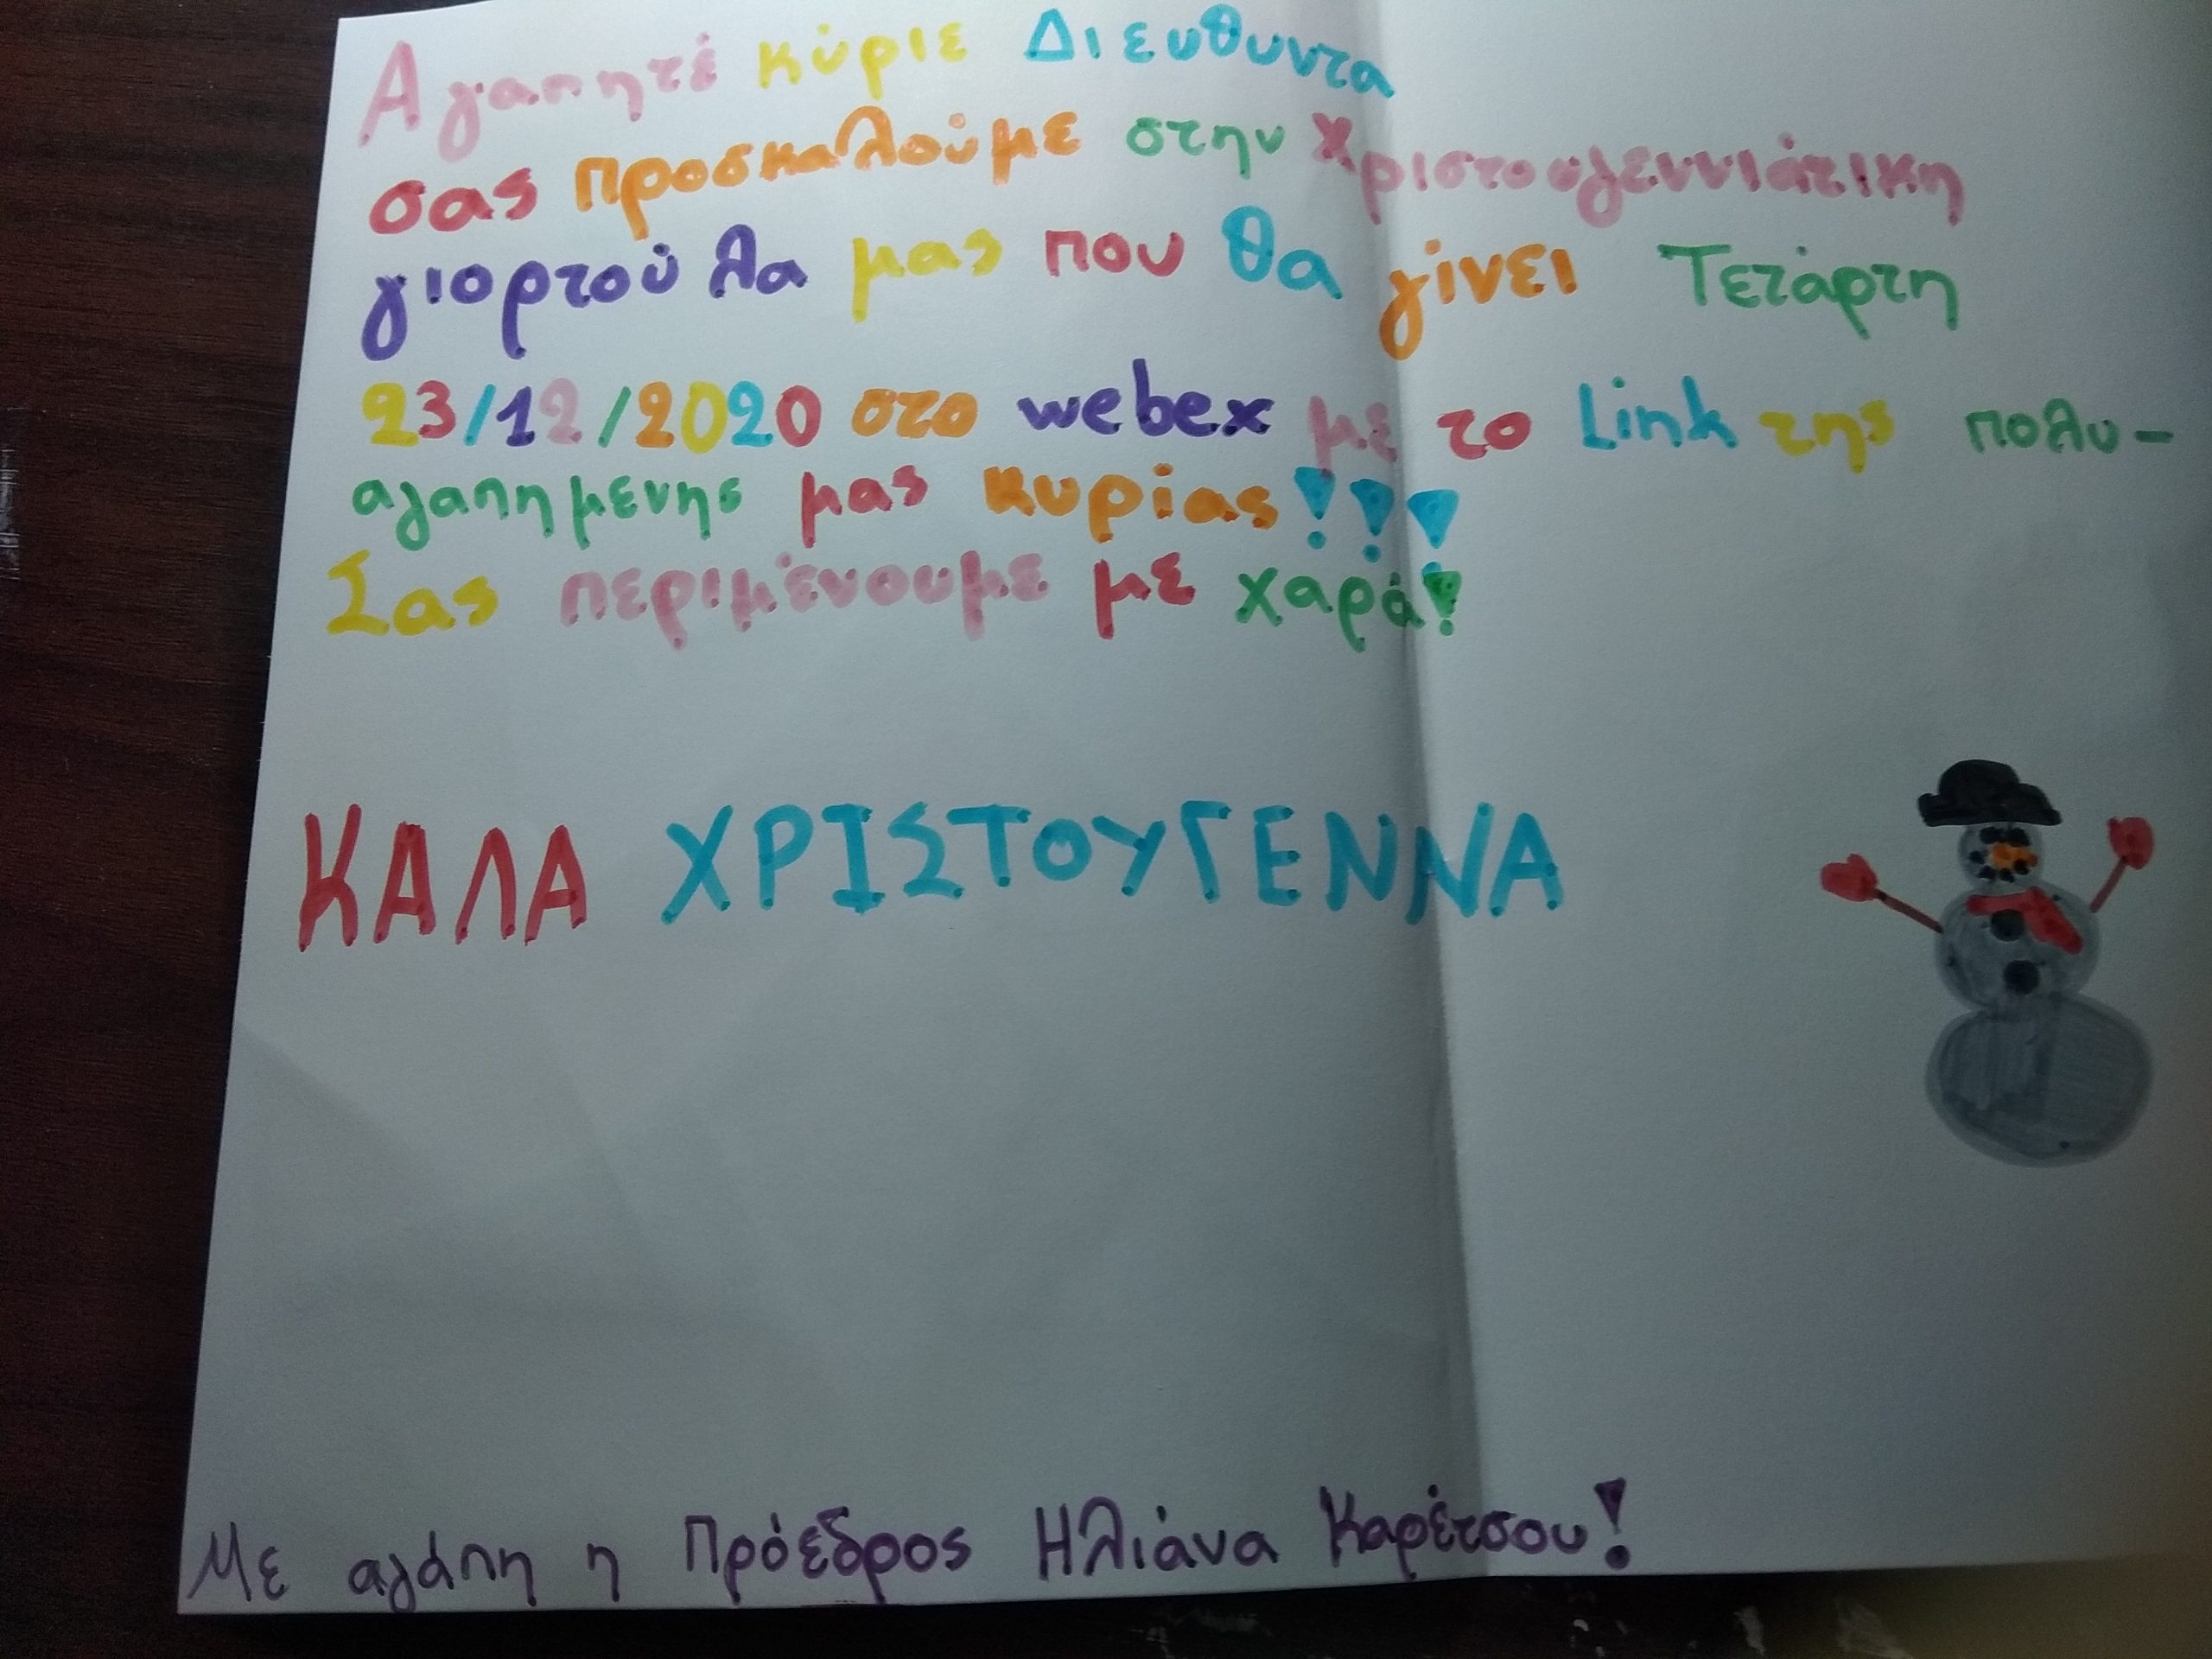 Αγαπητέ κύριε Διευθυντα
σας προσκαλούμε στην Χριστουγεννιάτικη
γιορτούλα μας που θα γίνει Τετάρτη
23/12/2020 στο webex με το Link της πολυ-
αγαπημενης μας κυρίας!!!
Σας περιμένουμε με χαρά!
ΚΑΛΑ ΧΡΙΣΤΟΥΓΕΝΝΑ
Με αγάπη η Πρόεδρος Ηλιάνα Καρέτσου!